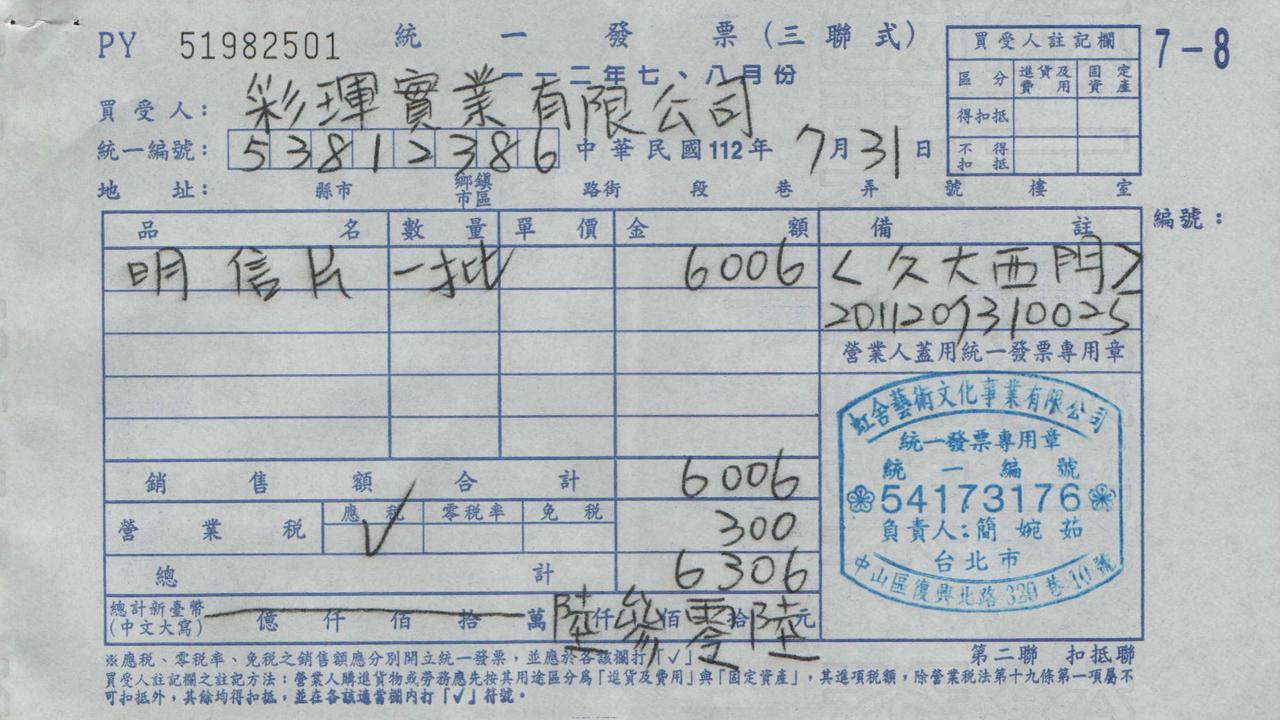 PY 51982501 統一發票(三聯式)
7-8
一一二年七、八月份
買受人: 彩琿實業有限公司
統一編號: 53812386 中華民國112年7月31日
地址: 縣市 鄉鎮市區 路街 段 巷 弄 號 樓 室
買受人註記欄
區分 進貨及費用 固定資產
得扣抵
不得扣抵
編號:
品名 數量 單價 金額 備註
明信片 一批 6006 <久大西門>
2011207310025
營業人蓋用統一發票專用章
銷售額合計 6006
營業稅 應稅 √ 零稅率 免稅 300
總計 6306
總計新臺幣(中文大寫) 億仟佰拾萬陸仟參佰零拾陸元
虹舍藝術文化事業有限公司
統一發票專用章
統一編號
54173176
負責人:簡婉茹
台北市
中山區復興北路320巷10號
第二聯 扣抵聯
※應稅、零稅率、免稅之銷售額應分別開立統一發票,並應於各該欄打「√」
買受人註記欄之註記方法:營業人購進貨物或勞務應先按其用途區分為「進貨及費用」與「固定資產」,其進項稅額,除營業稅法第十九條第一項屬不
可扣抵外,其餘均得扣抵,並在各該適當欄內打「√」符號。